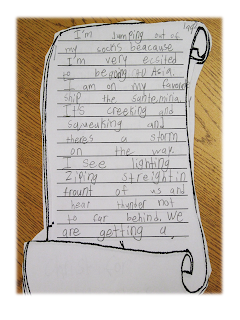 I'm Jumping out of
my socks beacause
I'm very ecsited
to begoing to Asia.
I am on my favorite
ship the santa maria.
It's creeking and
squeaking and
there's a storm
on the way
I see lighting
Ziping streightin
frount of us and
hear thunder not
to far behind. We
are getting a